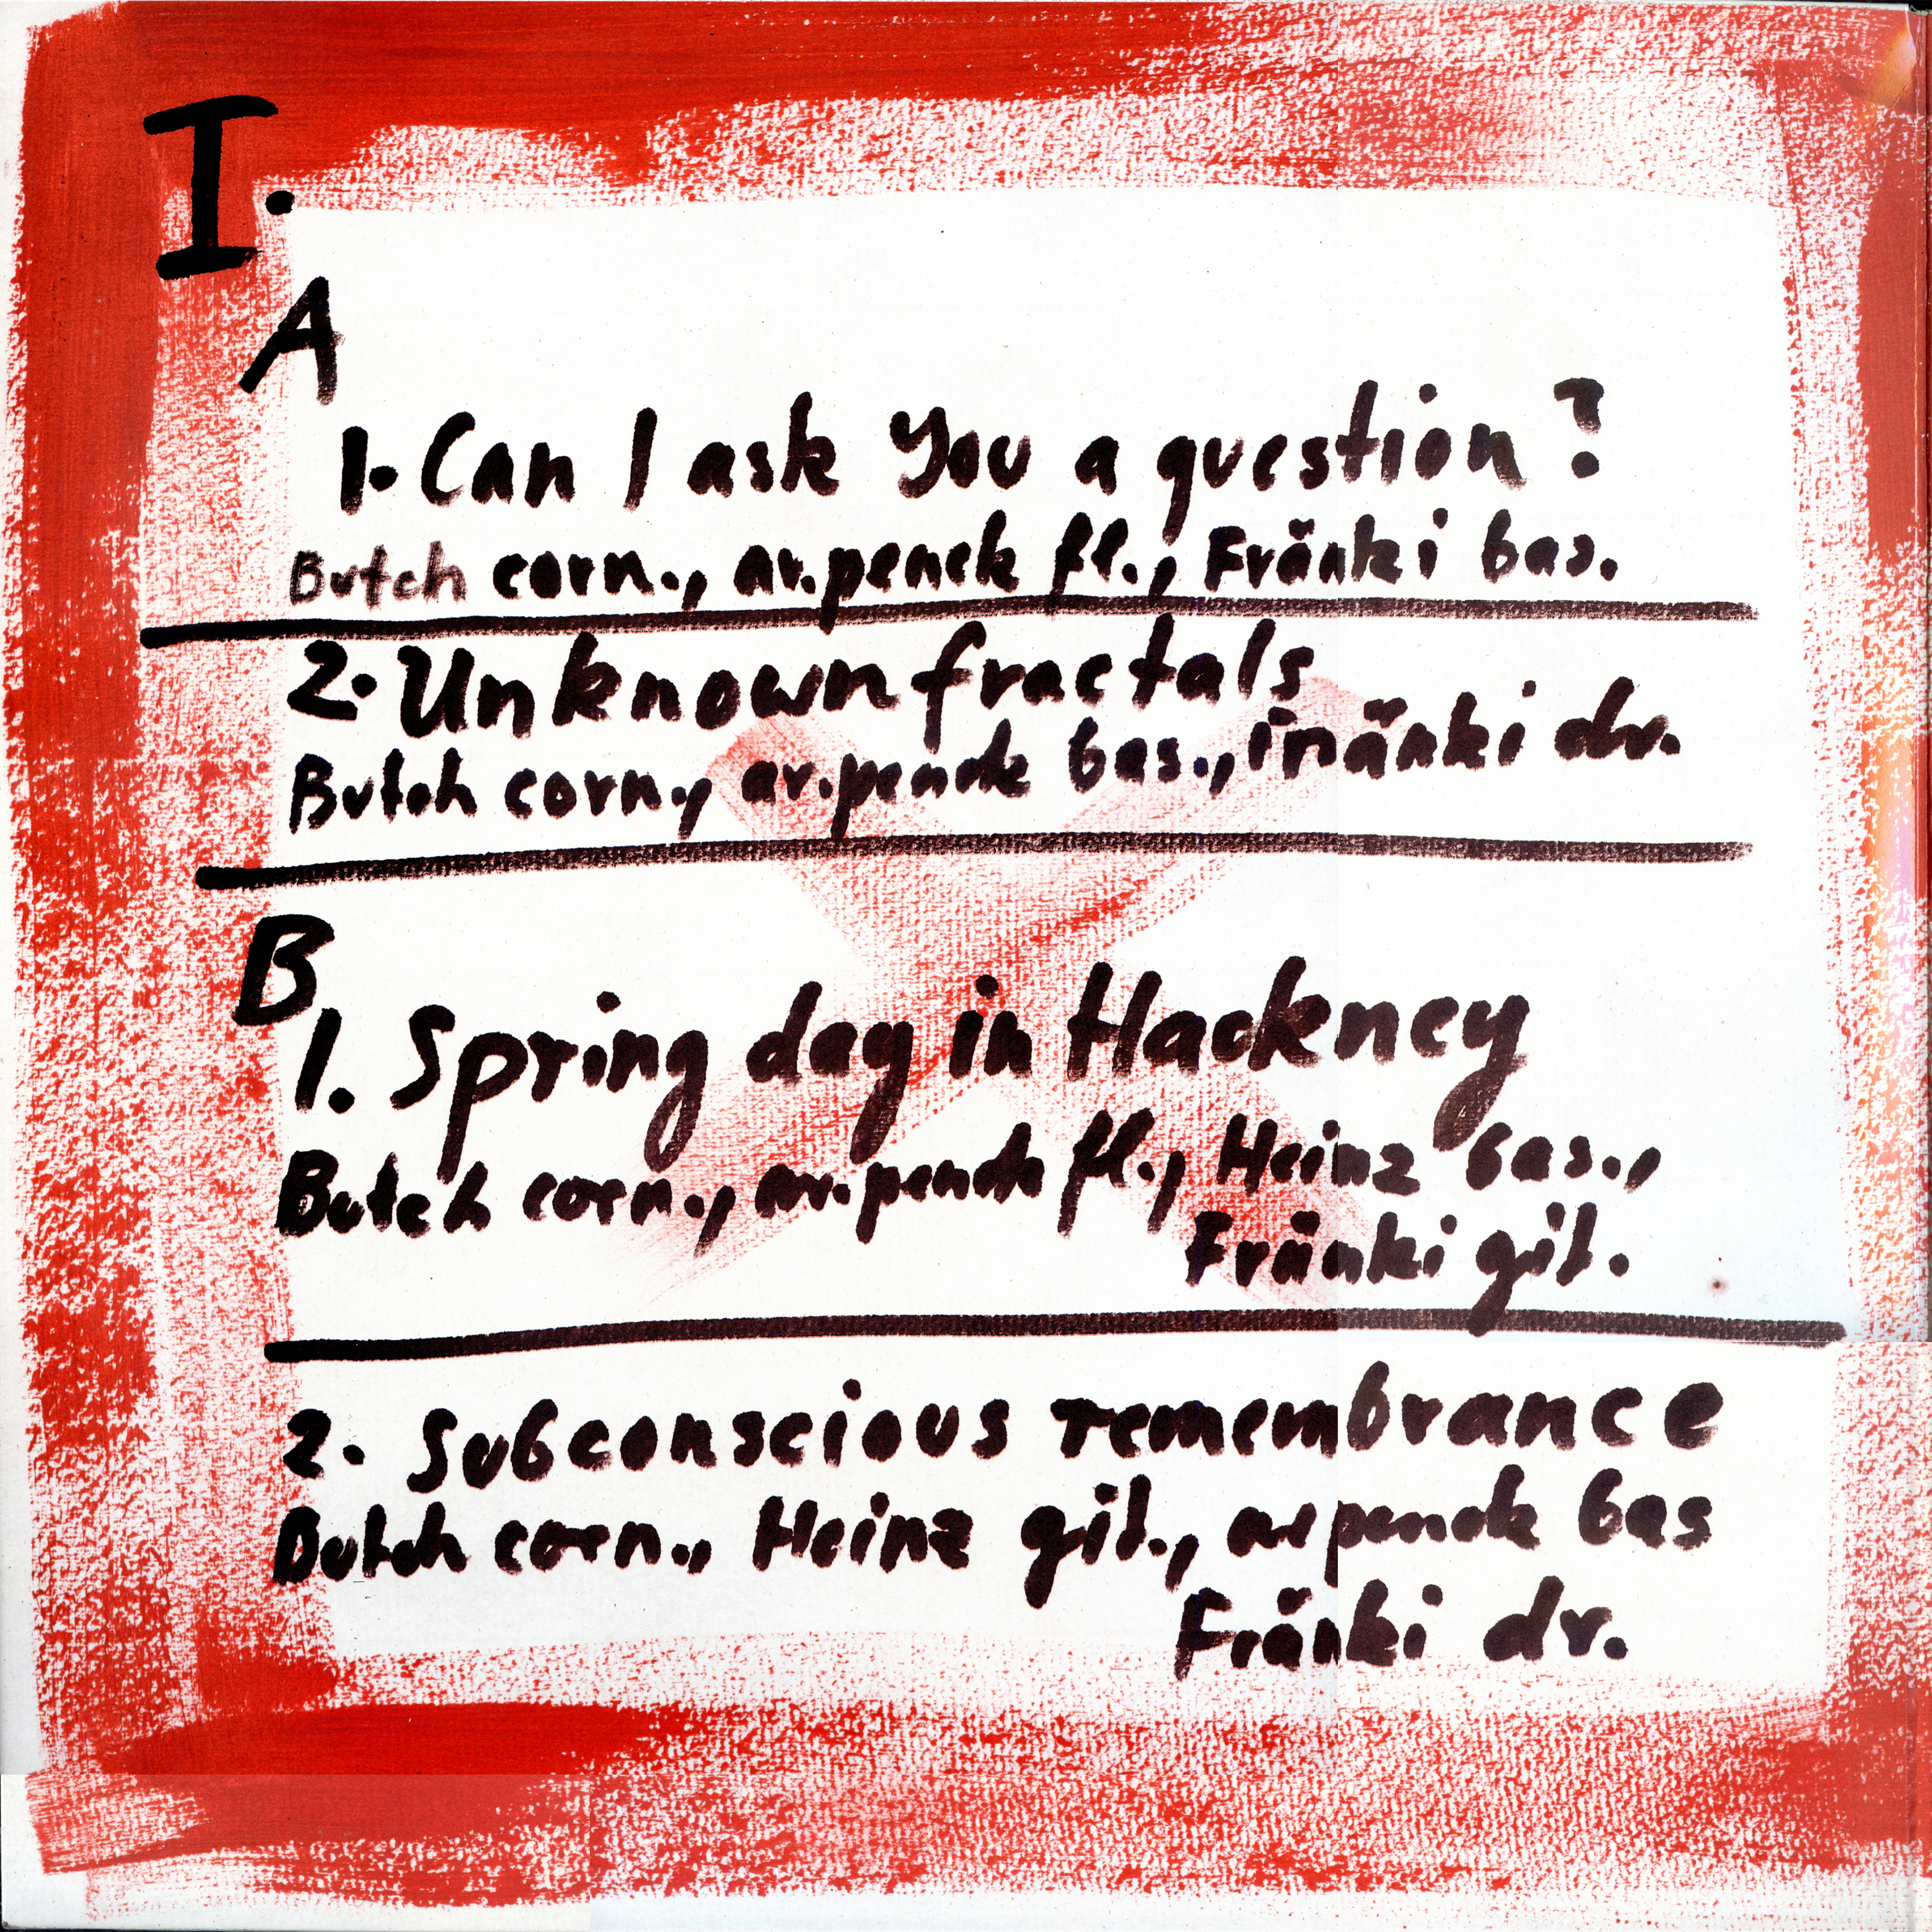 I.
A
1. Can I ask You a question?
Butch corn., ar.penck fl., Fränki bas.
2. Unknown fractals
Butch corn., ar.penck bas., Fränki dr.
B
1. Spring day in Hackney
Butch corn., ar.penck fl., Heinz bas.,
Fränki git.
2. Subconscious remembrance
Butch corn., Heinz git., ar penck bas
Fränki dr.